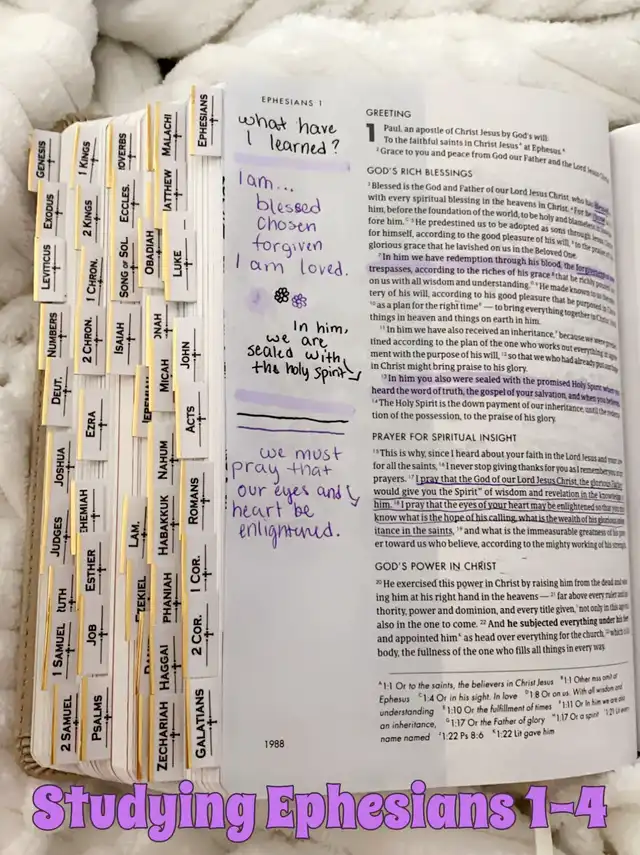 GENESIS
EXODUS
LEVITICUS
NUMBERS
DEUT.
JOSHUA
JUDGES
RUTH
1 SAMUEL
2 SAMUEL
1 KINGS
2 KINGS
1 CHRON.
2 CHRON.
EZRA
EHEMIAH
ESTHER
JOB
PSALMS
OVERBS
ECCLES.
SONG of SOL.
ISAIAH
LAM.
EZEKIEL
OBADIAH
ONAH
MICAH
NAHUM
HABAKKUK
PHANIAH
HAGGAI
ZECHARIAH
MALACHI
ATTHEW
LUKE
JOHN
ACTS
ROMANS
1 COR.
2 COR.
GALATIANS
EPHESIANS
EPHESIANS 1
what have
I learned?
I am...
blessed
chosen
forgiven
I am loved.
In him,
we are
sealed with
the holy spirit
we must
pray that
our eyes and
heart be
enlightened.
1988
GREETING
1 Paul, an apostle of Christ Jesus by God's will:
To the faithful saints in Christ Jesus at Ephesus.
2 Grace to you and peace from God our Father and the Lord
GOD'S RICH BLESSINGS
3 Blessed is the God and Father of our Lord Jesus Christ, who has
with every spiritual blessing in the heavens in Christ. 4 For he
him, before the foundation of the world, to be holy and blameless
fore him. 5 He predestined us to be adopted as sons through
for himself, according to the good pleasure of his will, 6 to the
glorious grace that he lavished on us in the Beloved One.
7 In him we have redemption through his blood, the
trespasses, according to the riches of his grace 8 that he richly
on us with all wisdom and understanding. 9 He made known to us the
tery of his will, according to his good pleasure that he purposed in
10 as a plan for the right time — to bring everything together in
things in heaven and things on earth in him.
11 In him we have also received an inheritance, because we were
tined according to the plan of the one who works out everything in
ment with the purpose of his will, 12 so that we who had already
in Christ might bring praise to his glory.
13 In him you also were sealed with the promised Holy Spirit when
heard the word of truth, the gospel of your salvation, and when you
14 The Holy Spirit is the down payment of our inheritance, until the
tion of the possession, to the praise of his glory.
PRAYER FOR SPIRITUAL INSIGHT
15 This is why, since I heard about your faith in the Lord Jesus and your
for all the saints, 16 I never stop giving thanks for you as I remember you
prayers. 17 I pray that the God of our Lord Jesus Christ, the glorious
would give you the Spirit of wisdom and revelation in the knowledge
him. 18 I pray that the eyes of your heart may be enlightened so that you
know what is the hope of his calling, what is the wealth of his glorious
itance in the saints, 19 and what is the immeasurable greatness of his
er toward us who believe, according to the mighty working of his strength.
GOD'S POWER IN CHRIST
20 He exercised this power in Christ by raising him from the dead and
ing him at his right hand in the heavens — 21 far above every ruler and
thority, power and dominion, and every title given, not only in this
also in the one to come. 22 And he subjected everything under his
and appointed him as head over everything for the church, 23 which
body, the fullness of the one who fills all things in every way.
1:1 Or to the saints, the believers in Christ Jesus 1:1 Other mss omit at
Ephesus 1:4 Or in his sight. In love 1:8 Or on us. With all wisdom and
understanding 1:10 Or the fulfillment of times 1:11 Or In him we are also
an inheritance, 1:17 Or the Father of glory 1:17 Or a spirit 1:21
name named 1:22 Ps 8:6 1:22 Lit gave him
Studying Ephesians 1-4